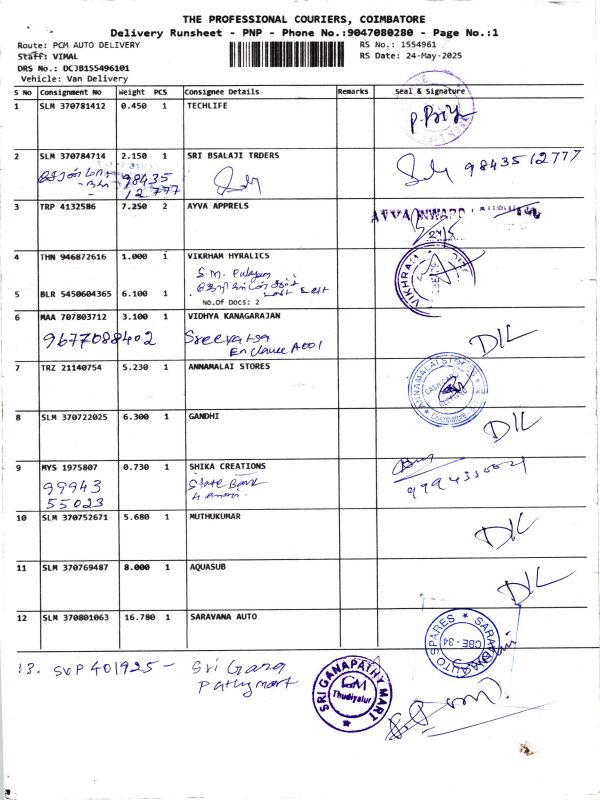 THE PROFESSIONAL COURIERS, COIMBATORE
Delivery Runsheet - PNP - Phone No.:9047080280 - Page No.:1
Route: PCM AUTO DELIVERY
RS No.: 1554961
Staff: VIMAL
RS Date: 24-May-2025
DRS No.: DCJB155496101
Vehicle: Van Delivery
S No Consignment No Weight PCS Consignee Details Remarks Seal & Signature
1 SLM 370781412 0.450 1 TECHLIFE
P. Priya
2 SLM 370784714 2.150 1 SRI BSALAJI TRDERS
98435 12777
98435
12777
3 TRP 4132586 7.250 2 AYVA APPRELS
24/5
4 THN 946872616 1.000 1 VIKRHAM HYRALICS
S.M. Palayam
5 BLR 5450604365 6.100 1
No.Of DOCS: 2
6 MAA 707803712 3.100 1 VIDHYA KANAGARAJAN
9677088402 Sreevatsa
Enclave A001
D/L
7 TRZ 21140754 5.230 1 ANNAMALAI STORES
ANNAMALAI STORES
Coimbatore
8 SLM 370722025 6.300 1 GANDHI
D/L
9 MYS 1975807 0.730 1 SHIKA CREATIONS
99943
55023
State Bank
9994330021
10 SLM 370752671 5.680 1 MUTHUKUMAR
D/L
11 SLM 370769487 8.000 1 AQUASUB
D/L
12 SLM 370801063 16.780 1 SARAVANA AUTO
SARAVANA AUTO SPARES
CBE - 34
13. SVP 401925 - Sri Gana
Pathy mart
SRI GANAPATHY MART
GM
Thudiyalur